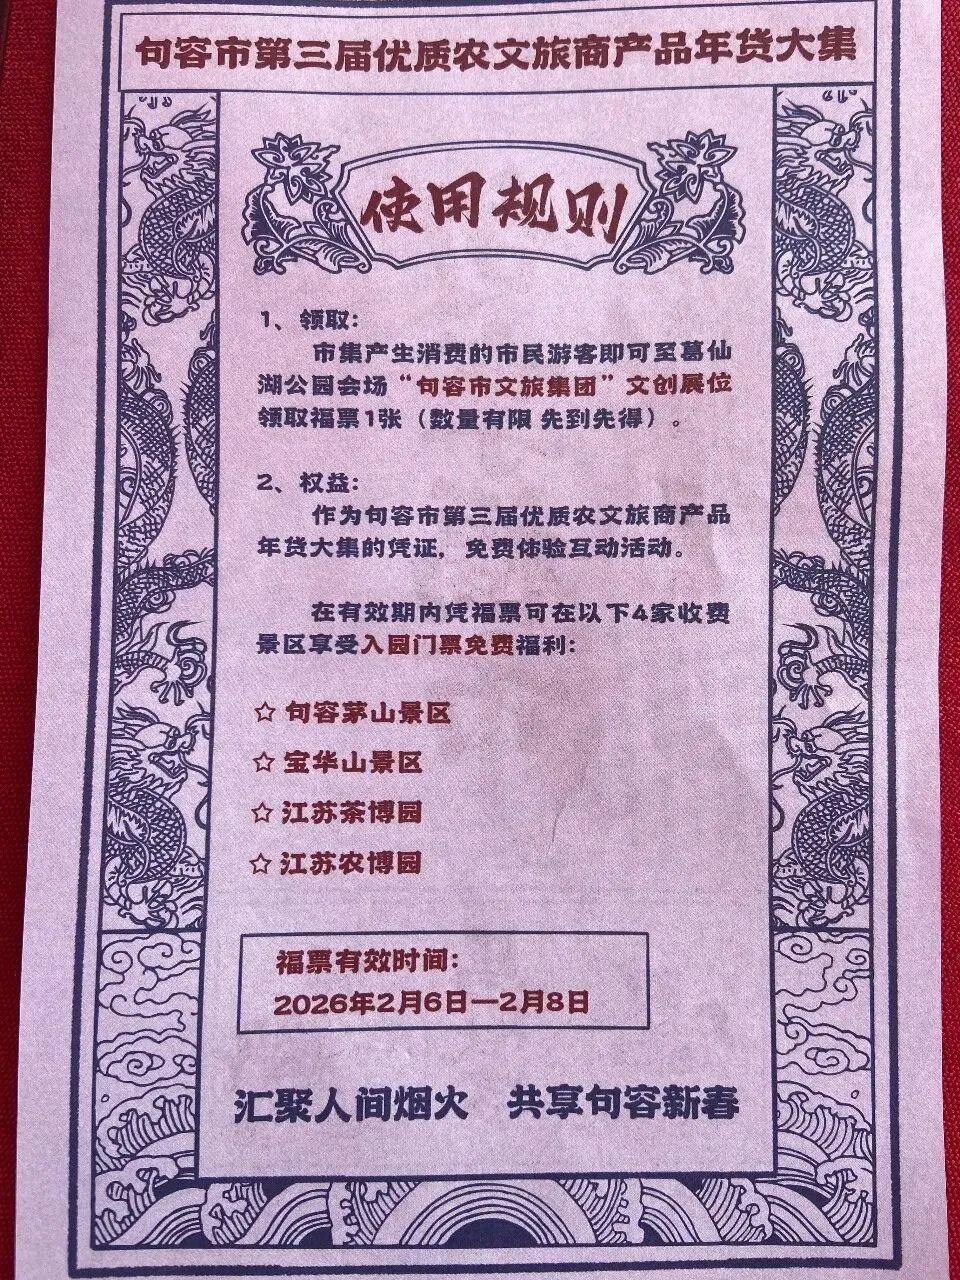 句容市第三届优质农文旅商产品年货大集
使用规则
1、领取：
市集产生消费的市民游客即可至葛仙
湖公园会场“句容市文旅集团”文创展位
领取福票1张（数量有限 先到先得）。
2、权益：
作为句容市第三届优质农文旅商产品
年货大集的凭证，免费体验互动活动。
在有效期内凭福票可在以下4家收费
景区享受入园门票免费福利：
☆ 句容茅山景区
☆ 宝华山景区
☆ 江苏茶博园
☆ 江苏农博园
福票有效时间：
2026年2月6日—2月8日
汇聚人间烟火 共享句容新春